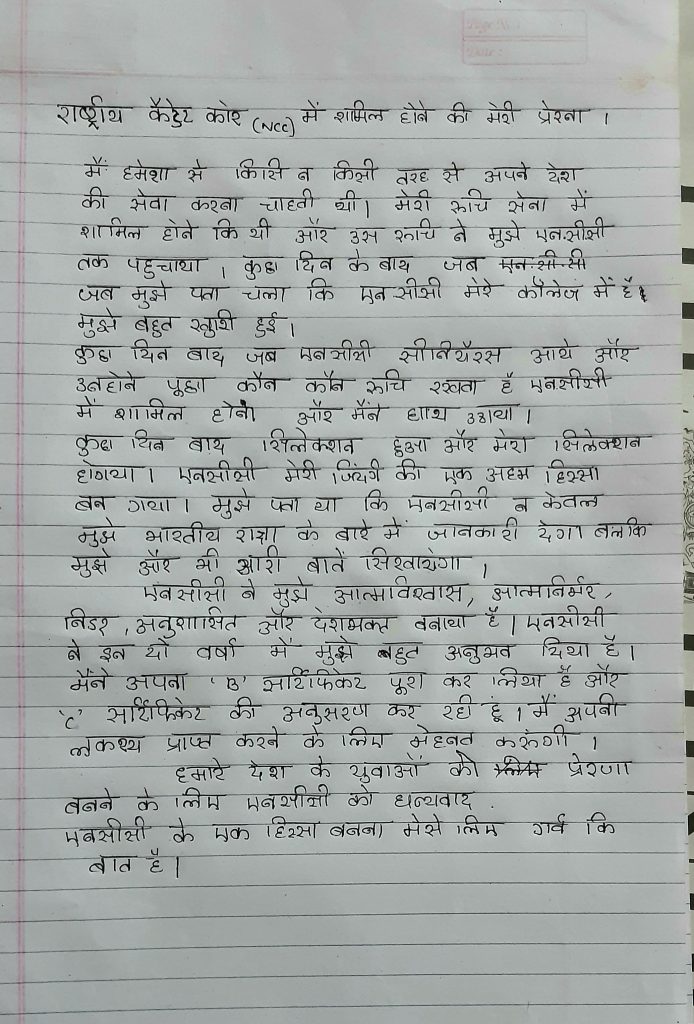 Page No.:
Date:
राष्ट्रीय कैडेट कोर (NCC) में शामिल होने की मेरी प्रेरना ।
मैं हमेशा से किसि न किसी तरह से अपने देश
की सेवा करना चाहती थी। मेरी रुचि सेना में
शामिल होने कि थी और उस रुचि ने मुझे एन.सीसी
तक पहुचाया । कुछ दिन के बाद जब एन.सी.सी
जब मुझे पता चला कि एन.सीसी मेरे कॉलेज में है।
मुझे बहुत खुशी हुई ।
कुछ दिन बाद जब एनसीसी सीनियॅरस आये और
उनहोने पूछा कौन कौन रुचि रखता है एनसीसी
में शामिल होना और मैंने हाथ उठाया ।
कुछ दिन बाद सिलेक्शन हुआ और मेरा सिलेक्शन
होगया । एनसीसी मेरी जिंदगी की एक अहम हिस्सा
बन गया । मुझे पता था कि एनसीसी न केवल
मुझे भारतीय राज्ञा के बारे में जानकारी देगा बलकि
मुझे और भी सारी बातें सिखाएगा ।
एनसीसी ने मुझे आत्मविश्वास, आत्मनिर्भर,
निडर, अनुशासित और देशभक्त बनाया है । एनसीसी
ने इन दो वर्षा में मुझे बहुत अनुभव दिया है ।
मैंने अपना 'B' सर्टिफिकेट पूरा कर लिया है और
'C' सर्टिफिकेट की अनुसरण कर रही हूं । मैं अपनी
लकश्य प्राप्त करने के लिए मेहनत करुंगी ।
हमारे देश के युवाओं को प्रेरणा
बनने के लिए एनसीसी को धन्यवाद .
एनसीसी के एक हिस्सा बनना मेसे लिए गर्व कि
बात है ।